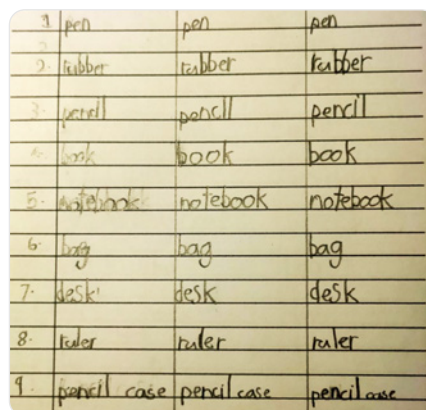 1 pen pen pen
2. rubber rubber rubber
3. pencil pencil pencil
4. book book book
5. notebook notebook notebook
6. bag bag bag
7. desk desk desk
8. ruler ruler ruler
9. pencil case pencil case pencil case